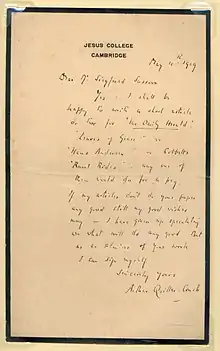 JESUS COLLEGE
CAMBRIDGE
May 11th 1919
Dear Mr Siegfried Sassoon
Yes: I shall be
happy to write a short article
or two for "The Daily Herald"
"Hans Andersen" or Cobbett's
"Rural Rides" : any one of
them would do for a peg.
If my articles don't do your paper
any good still my good wishes
may — I have given up speculating
on what will do any good But
as an of your work
I can sign myself
Sincerely yours
Arthur Quiller-Couch